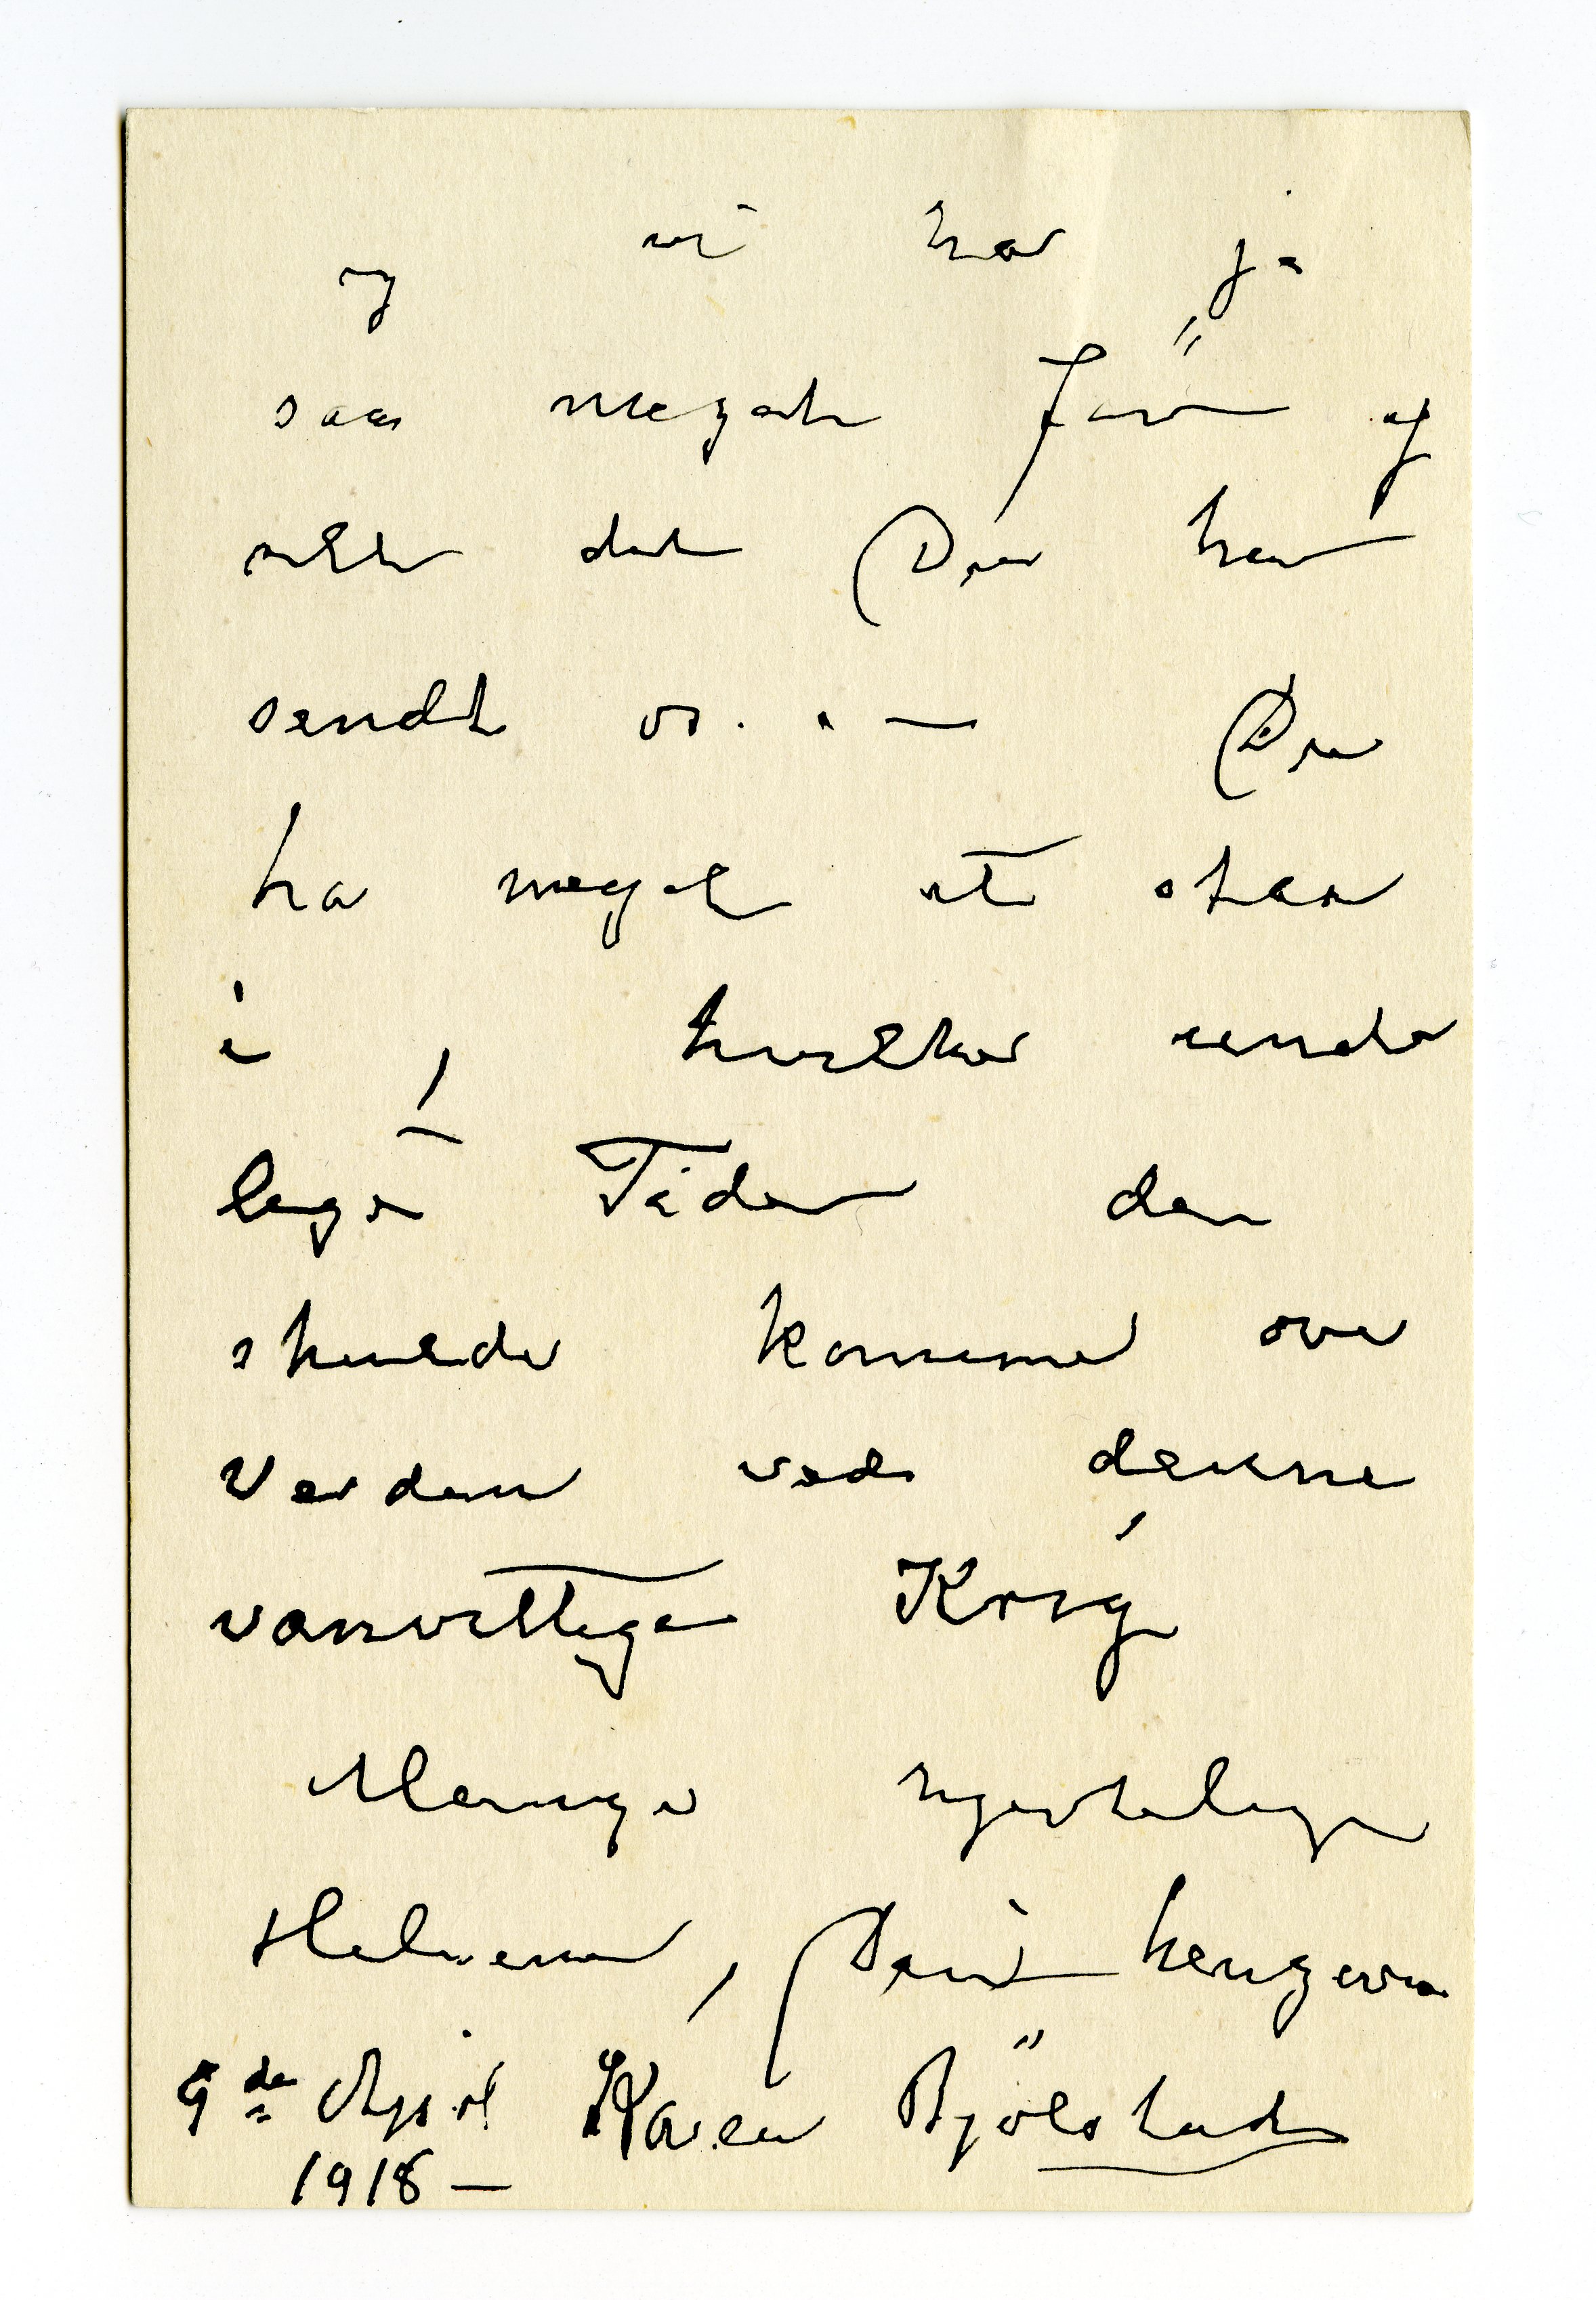 og vi har ja
saa meget før af
alt det De har
sendt os. . —
De
har meget at staa
i, hvilke underlige
Tider der
skulde komme over
Verden ved denne
vanvittige Krig
Mange hjertelige
Hilsener, Deres hengivne
9de April Karen Bjølstad
1918 —